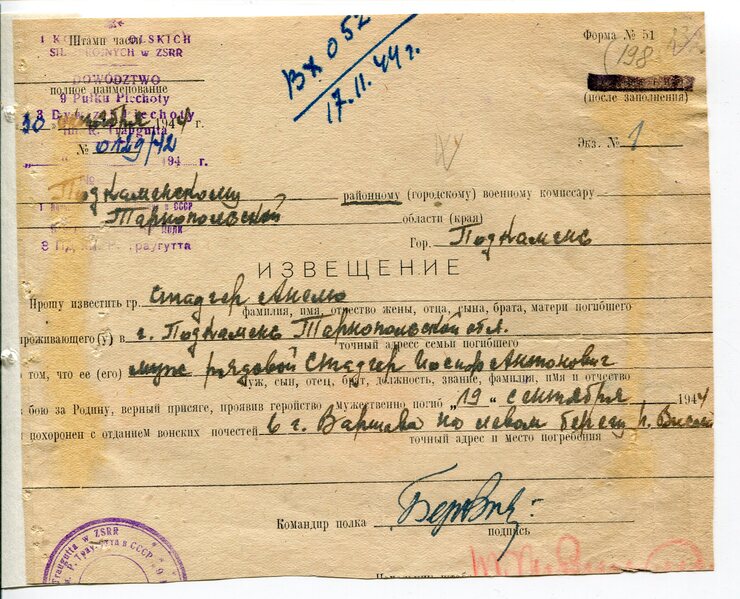 Штамп части
1 K OLSKICH
SIŁ ROJNYCH w ZSRR
Форма № 51
(198
Вх 052
17.11.44 г.
DOWÓDZTWO
полное наименование
9 Pułku Piechoty
3 Dywizji Piechoty
im. R. Traugutta
(после заполнения)
30 ноября 1944 г.
№ 0129/42
" " 194 г.
Экз. № 1
Подкаменскому районному (городскому) военному комиссару
Тарнопольской области (края)
3 Траугутта
Гор. Подкамень
ИЗВЕЩЕНИЕ
Прошу известить гр. Стадгер Анелю
фамилия, имя, отчество жены, отца, сына, брата, матери погибшего
проживающего(у) в г. Подкамень Тарнопольской обл.
точный адрес семьи погибшего
о том, что ее (его) муж рядовой Стадгер Иосиф Антонович
муж, сын, отец, брат, должность, звание, фамилия, имя и отчество
в бою за Родину, верный присяге, проявив геройство и мужество погиб „19" сентября 1944
похоронен с отданием воинских почестей в г. Варшава на левом берегу р. Висла
точный адрес и место погребения
Командир полка
подпись
Traugutta w ZSRR
Р. Траугутта в СССР